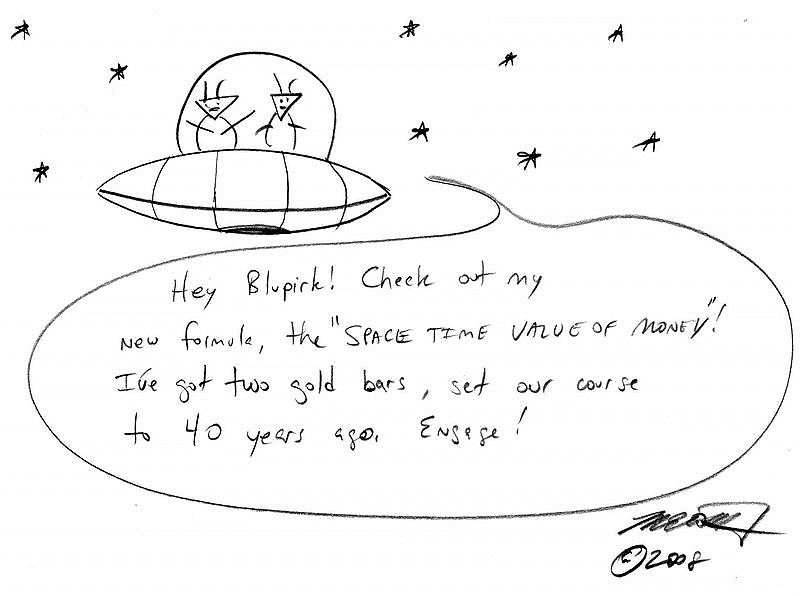 Hey Blupirk! Check out my
new formula, the "SPACE TIME VALUE OF MONEY"!
I've got two gold bars, set our course
to 40 years ago. Engage!
©2008